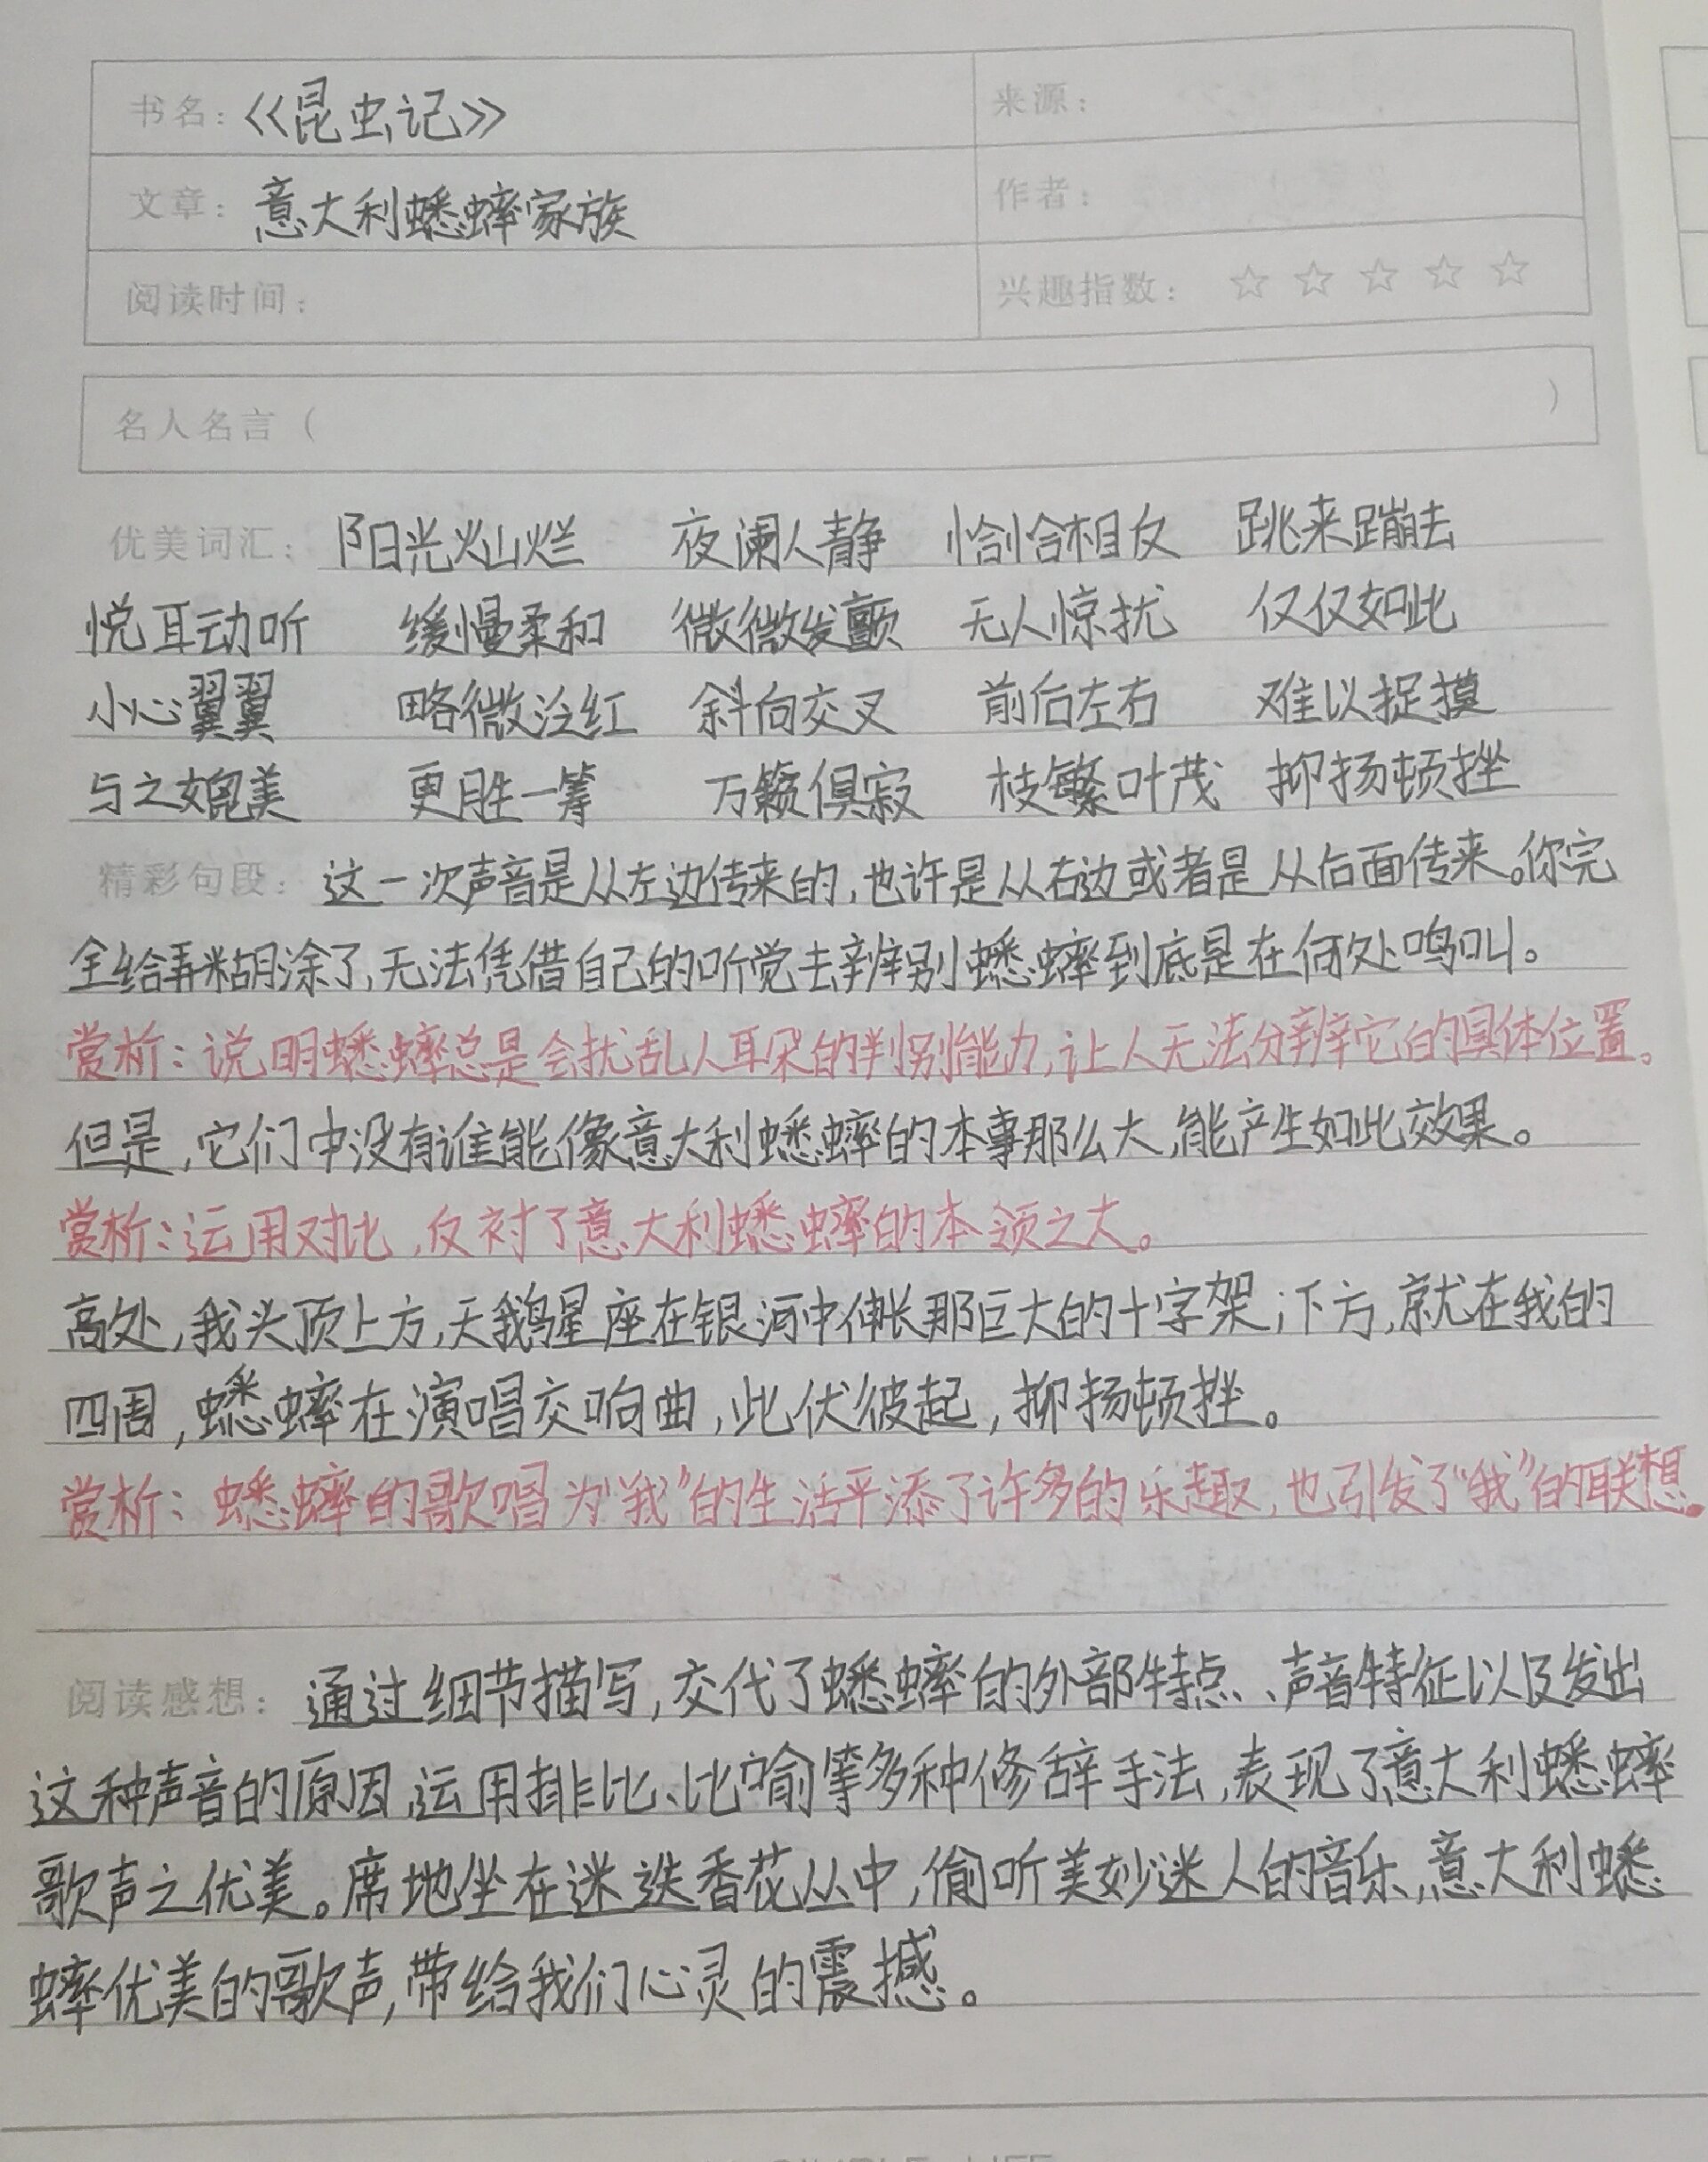 书名：《昆虫记》 来源：
文章：意大利蟋蟀家族 作者：
阅读时间： 兴趣指数：☆☆☆☆☆
名人名言（ ）
优美词汇：阳光灿烂 夜阑人静 恰恰相反 跳来蹦去
悦耳动听 缓慢柔和 微微发颤 无人惊扰 仅仅如此
小心翼翼 略微泛红 斜向交叉 前后左右 难以捉摸
与之媲美 更胜一筹 万籁俱寂 枝繁叶茂 抑扬顿挫
精彩句段：这一次声音是从左边传来的，也许是从右边或者是从后面传来。你完
全给弄糊涂了，无法凭借自己的听觉去辨别蟋蟀到底是在何处鸣叫。
赏析：说明蟋蟀总是会扰乱人耳朵的判别能力，让人无法分辨它的具体位置。
但是，它们中没有谁能像意大利蟋蟀的本事那么大，能产生如此效果。
赏析：运用对比，反衬了意大利蟋蟀的本领之大。
高处，我头顶上方，天鹅星座在银河中伸长那巨大的十字架；下方，就在我的
四周，蟋蟀在演唱交响曲，此伏彼起，抑扬顿挫。
赏析：蟋蟀的歌唱为“我”的生活平添了许多的乐趣，也引发了“我”的联想。
阅读感想：通过细节描写，交代了蟋蟀的外部特点、声音特征以及发出
这种声音的原因，运用排比、比喻等多种修辞手法，表现了意大利蟋蟀
歌声之优美。席地坐在迷迭香花丛中，偷听美妙迷人的音乐，意大利蟋
蟀优美的歌声，带给我们心灵的震撼。